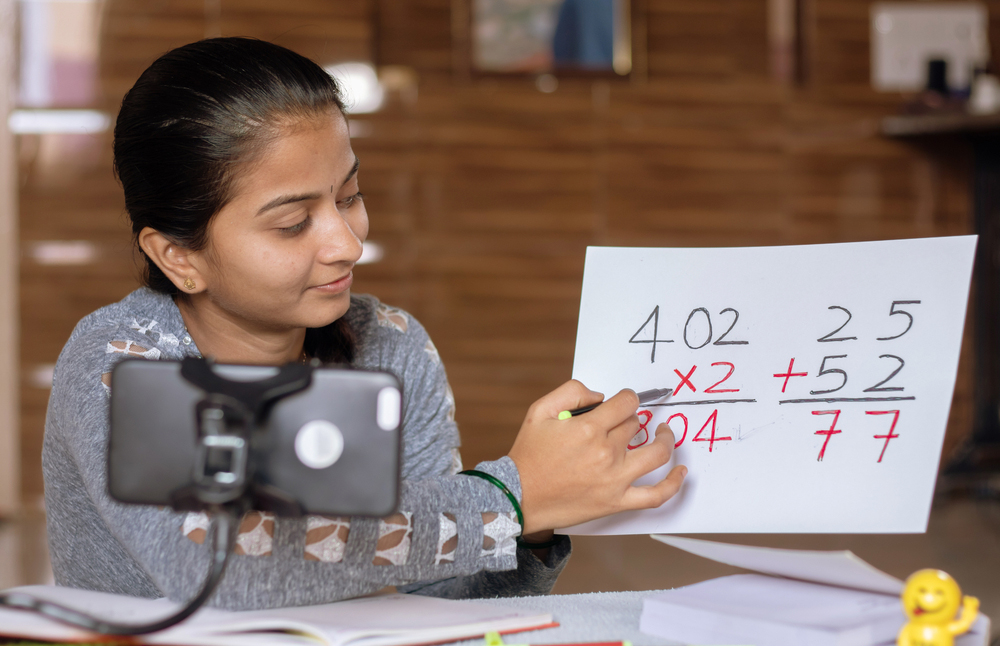 402
×2
804
25
+52
77